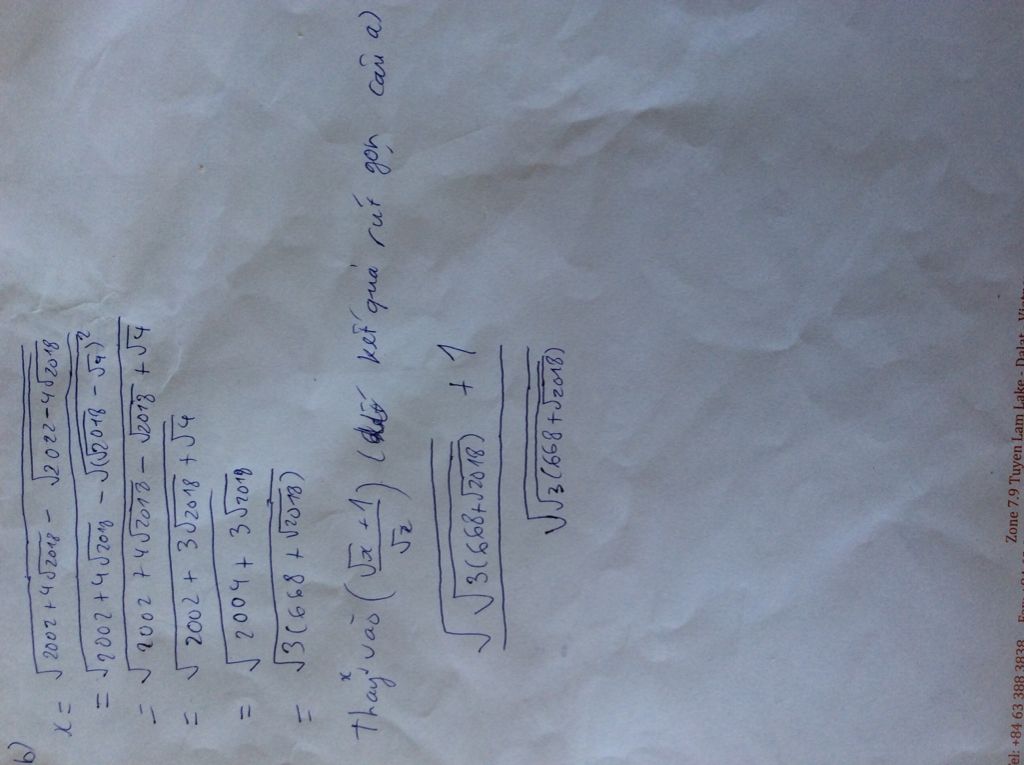 b)
x = √(2002 + 4√2018 - √(2022 - 4√2018))
= √(2002 + 4√2018 - √((√2018 - √4)²))
= √(2002 + 4√2018 - √2018 + √4)
= √(2002 + 3√2018 + √4)
= √(2004 + 3√2018)
= √(3(668 + √2018))
Thay x vào ((√x + 1)/√x) ( kết quả rút gọn câu a)
(√(√(3(668+√2018))) + 1)/√(√(3(668+√2018)))
Zone 7.9 Tuyen Lam Lake - Dalat
Tel: +84 63 388 3838